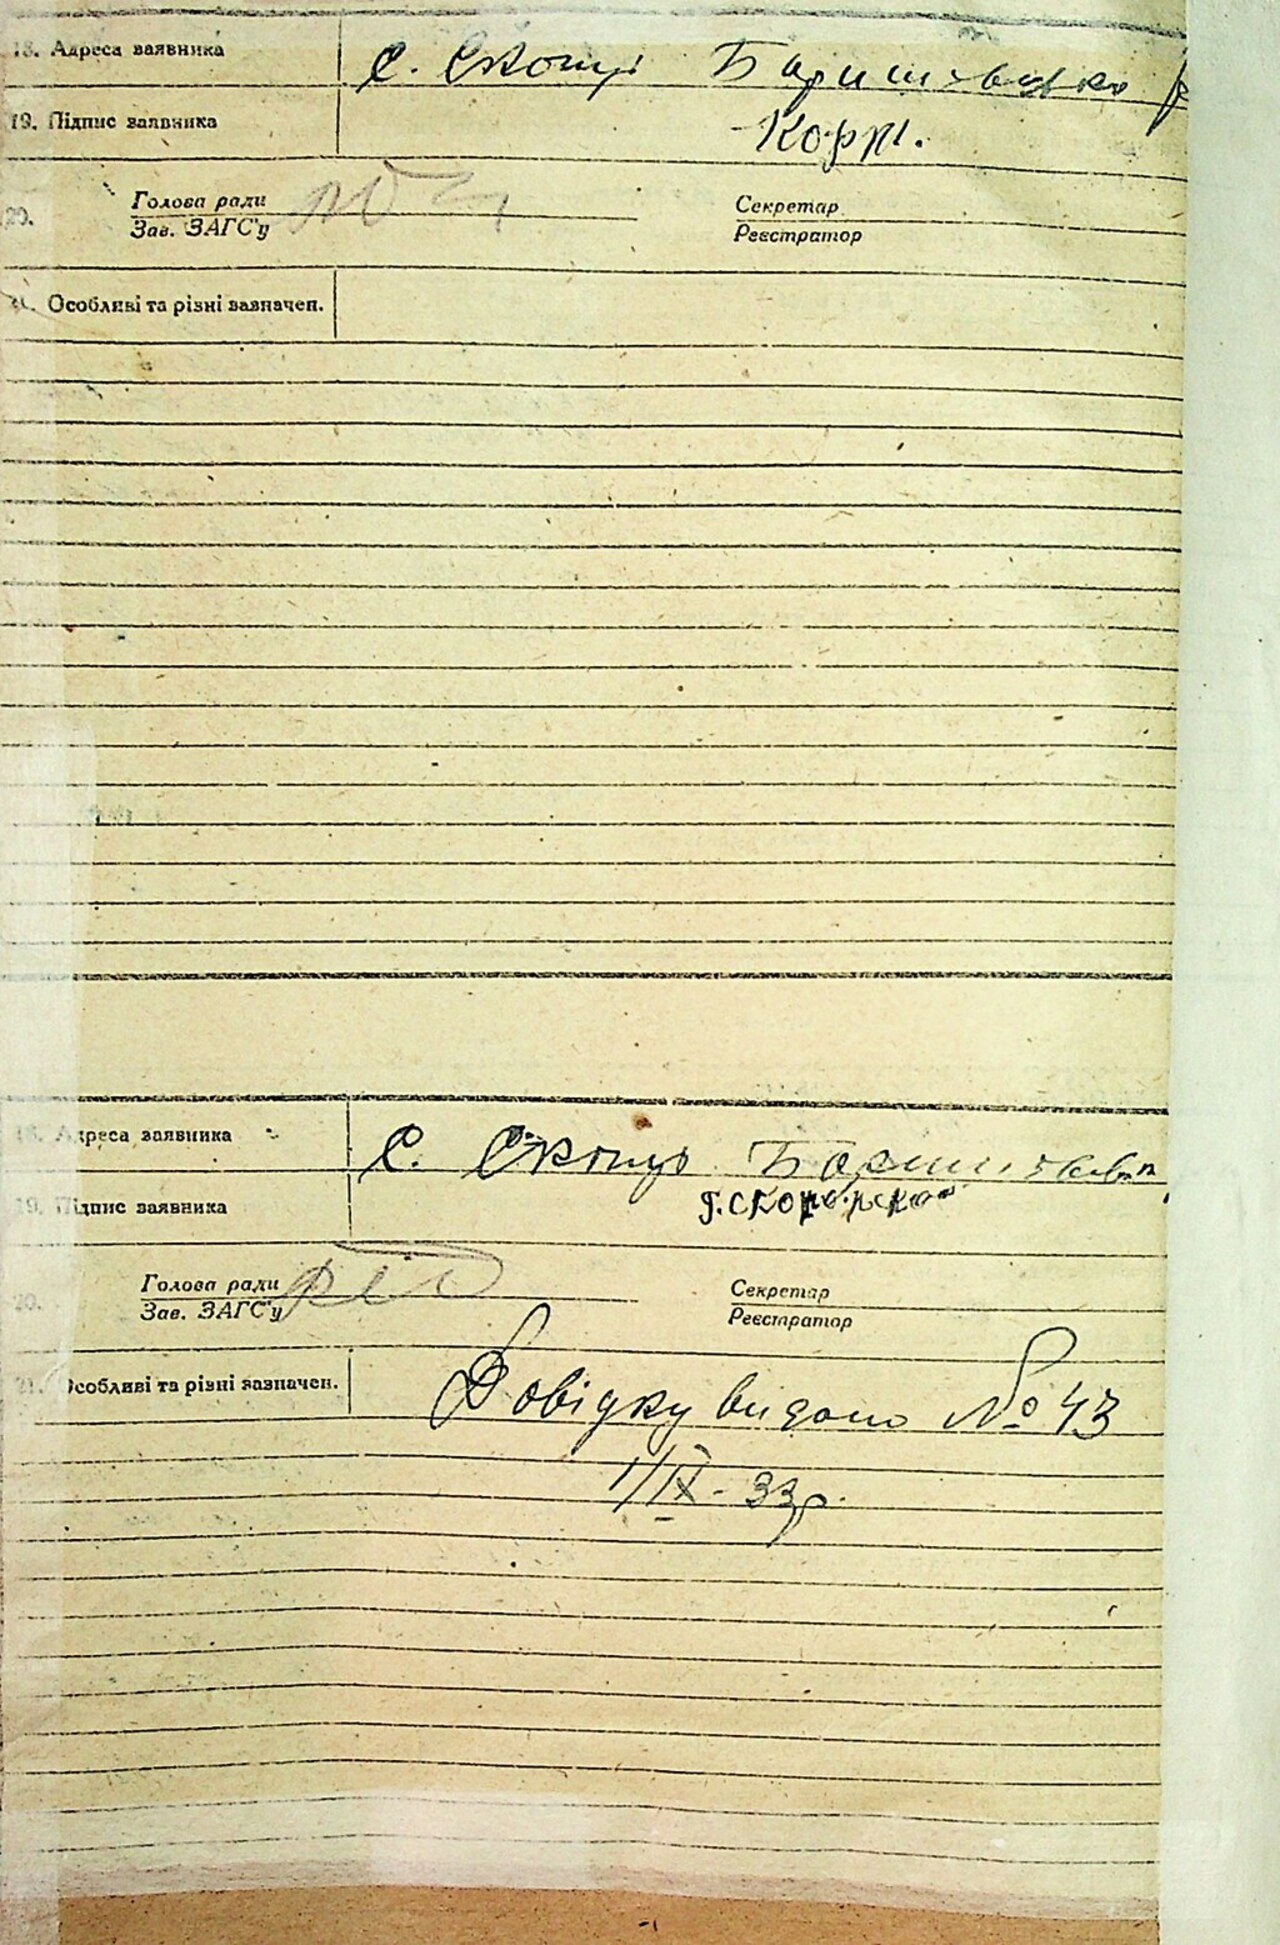 18. Адреса заявника с. Скопці Баришівсько р
19. Підпис заявника
20. Голова ради Секретар
Зав. ЗАГС'у Реєстратор
21. Особливі та різні зазначен.
18. Адреса заявника с. Скопці
19. Підпис заявника
20. Голова ради Секретар
Зав. ЗАГС'у Реєстратор
21. Особливі та різні зазначен. Довідку видано № 43
1/IX - 33р.